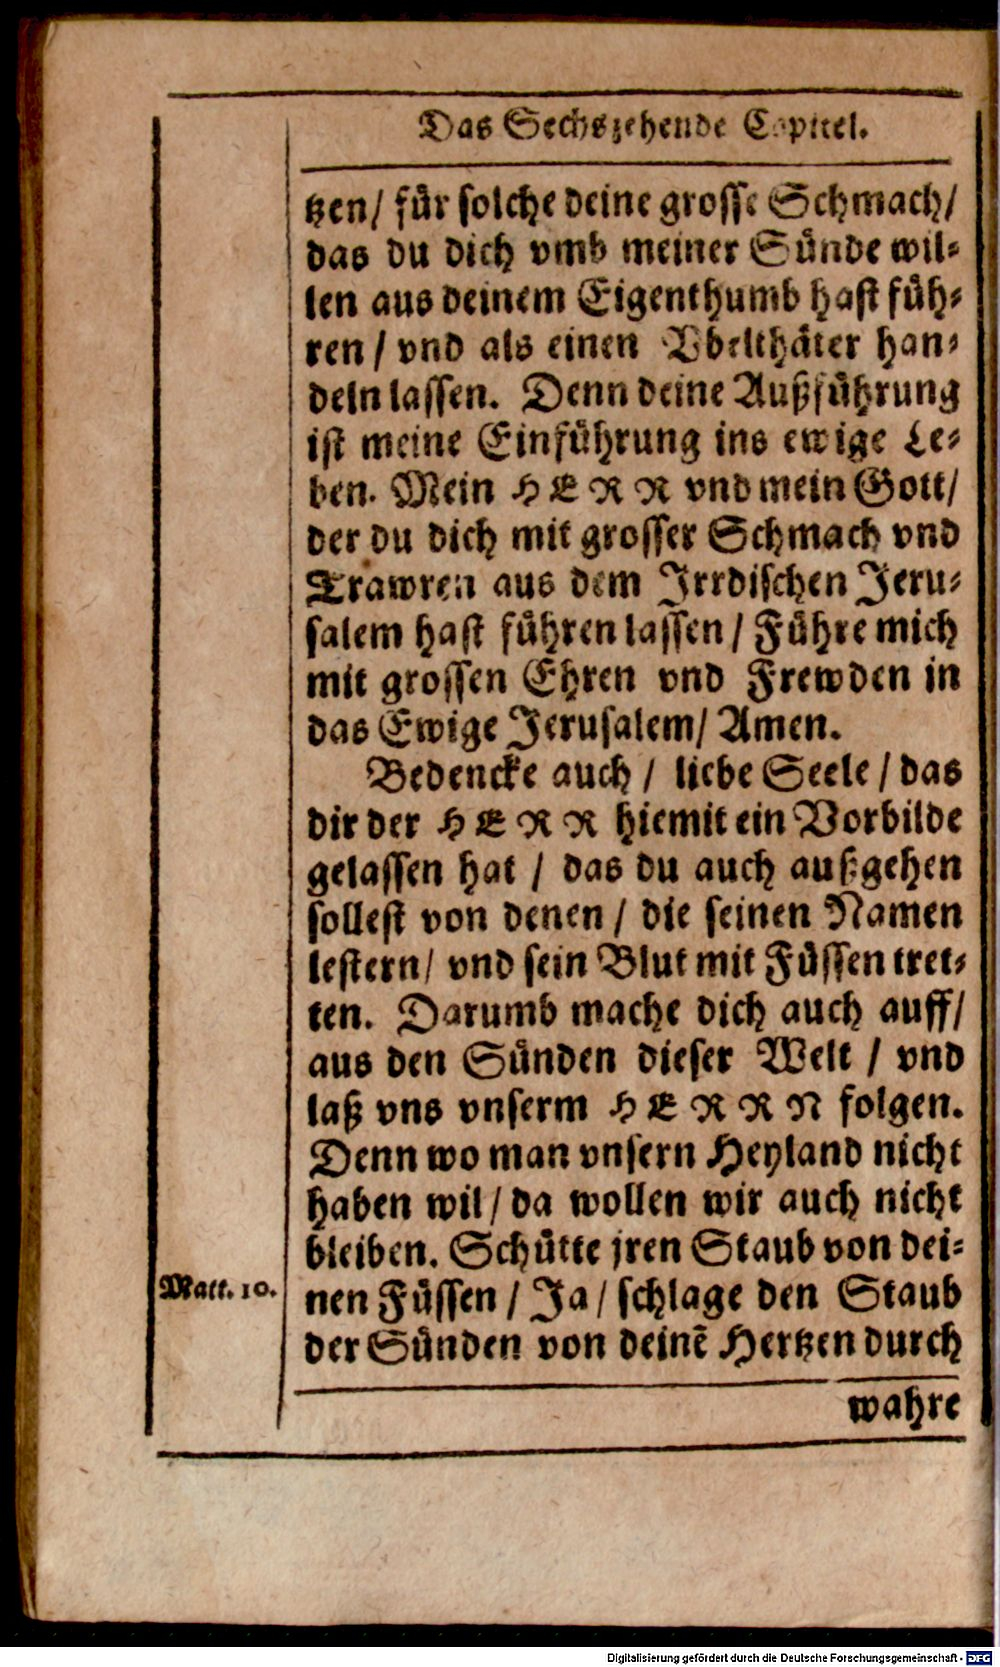 Das Sechszehende Capitel.
tzen/ für solche deine grosse Schmach/
das du dich vmb meiner Sünde wil-
len aus deinem Eigenthumb hast füh-
ren / vnd als einen Vbelthäter han-
deln lassen. Denn deine Außführung
ist meine Einführung ins ewige Le-
ben. Mein HERR vnd mein Gott/
der du dich mit grosser Schmach vnd
Trawren aus dem Irrdischen Jeru-
salem hast führen lassen / Führe mich
mit grossen Ehren vnd Frewden in
das Ewige Jerusalem/ Amen.
Bedencke auch / liebe Seele / das
dir der HERR hiemit ein Vorbilde
gelassen hat / das du auch außgehen
sollest von denen / die seinen Namen
lestern/ vnd sein Blut mit Füssen tret-
ten. Darumb mache dich auch auff/
aus den Sünden dieser Welt / vnd
laß vns vnserm HERRN folgen.
Denn wo man vnsern Heyland nicht
haben wil / da wollen wir auch nicht
bleiben. Schütte jren Staub von dei-
Matt. 10.
nen Füssen / Ja / schlage den Staub
der Sünden von deinē Hertzen durch
wahre
Digitalisierung gefördert durch die Deutsche Forschungsgemeinschaft - DFG